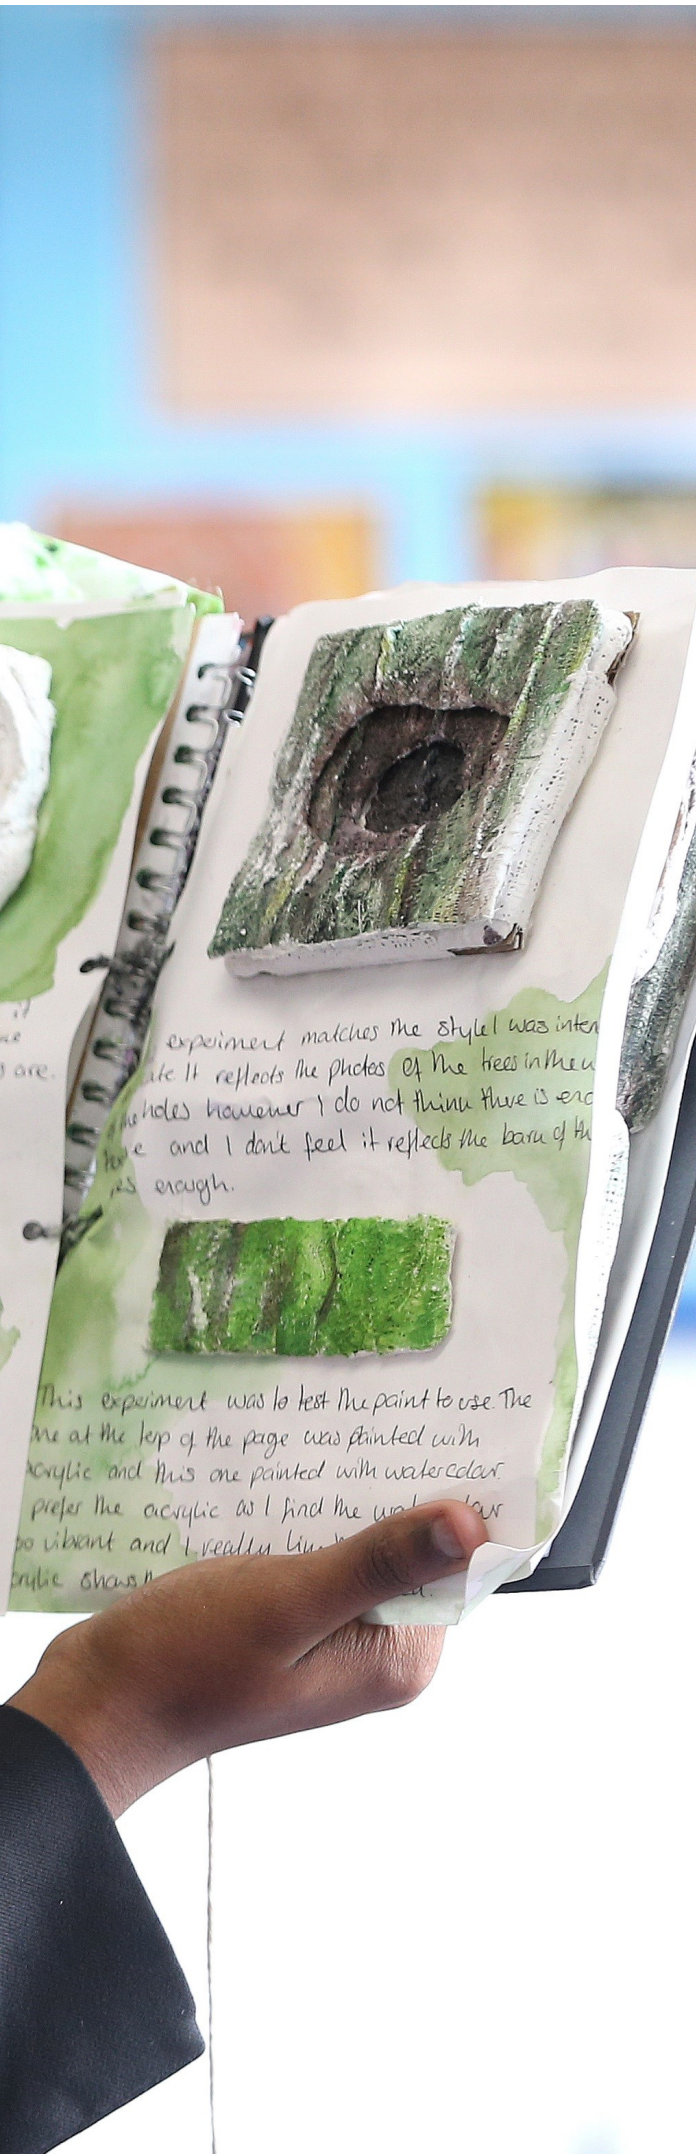 are.
experiment matches the style I was inten
It reflects the photos of the trees in the w
holes however I do not think there is eno
and I don't feel it reflects the bark of th
enough.
This experiment was to test the paint to use. The
one at the top of the page was painted with
acrylic and this one painted with watercolour.
prefer the acrylic as I find the
vibrant and I really
shows